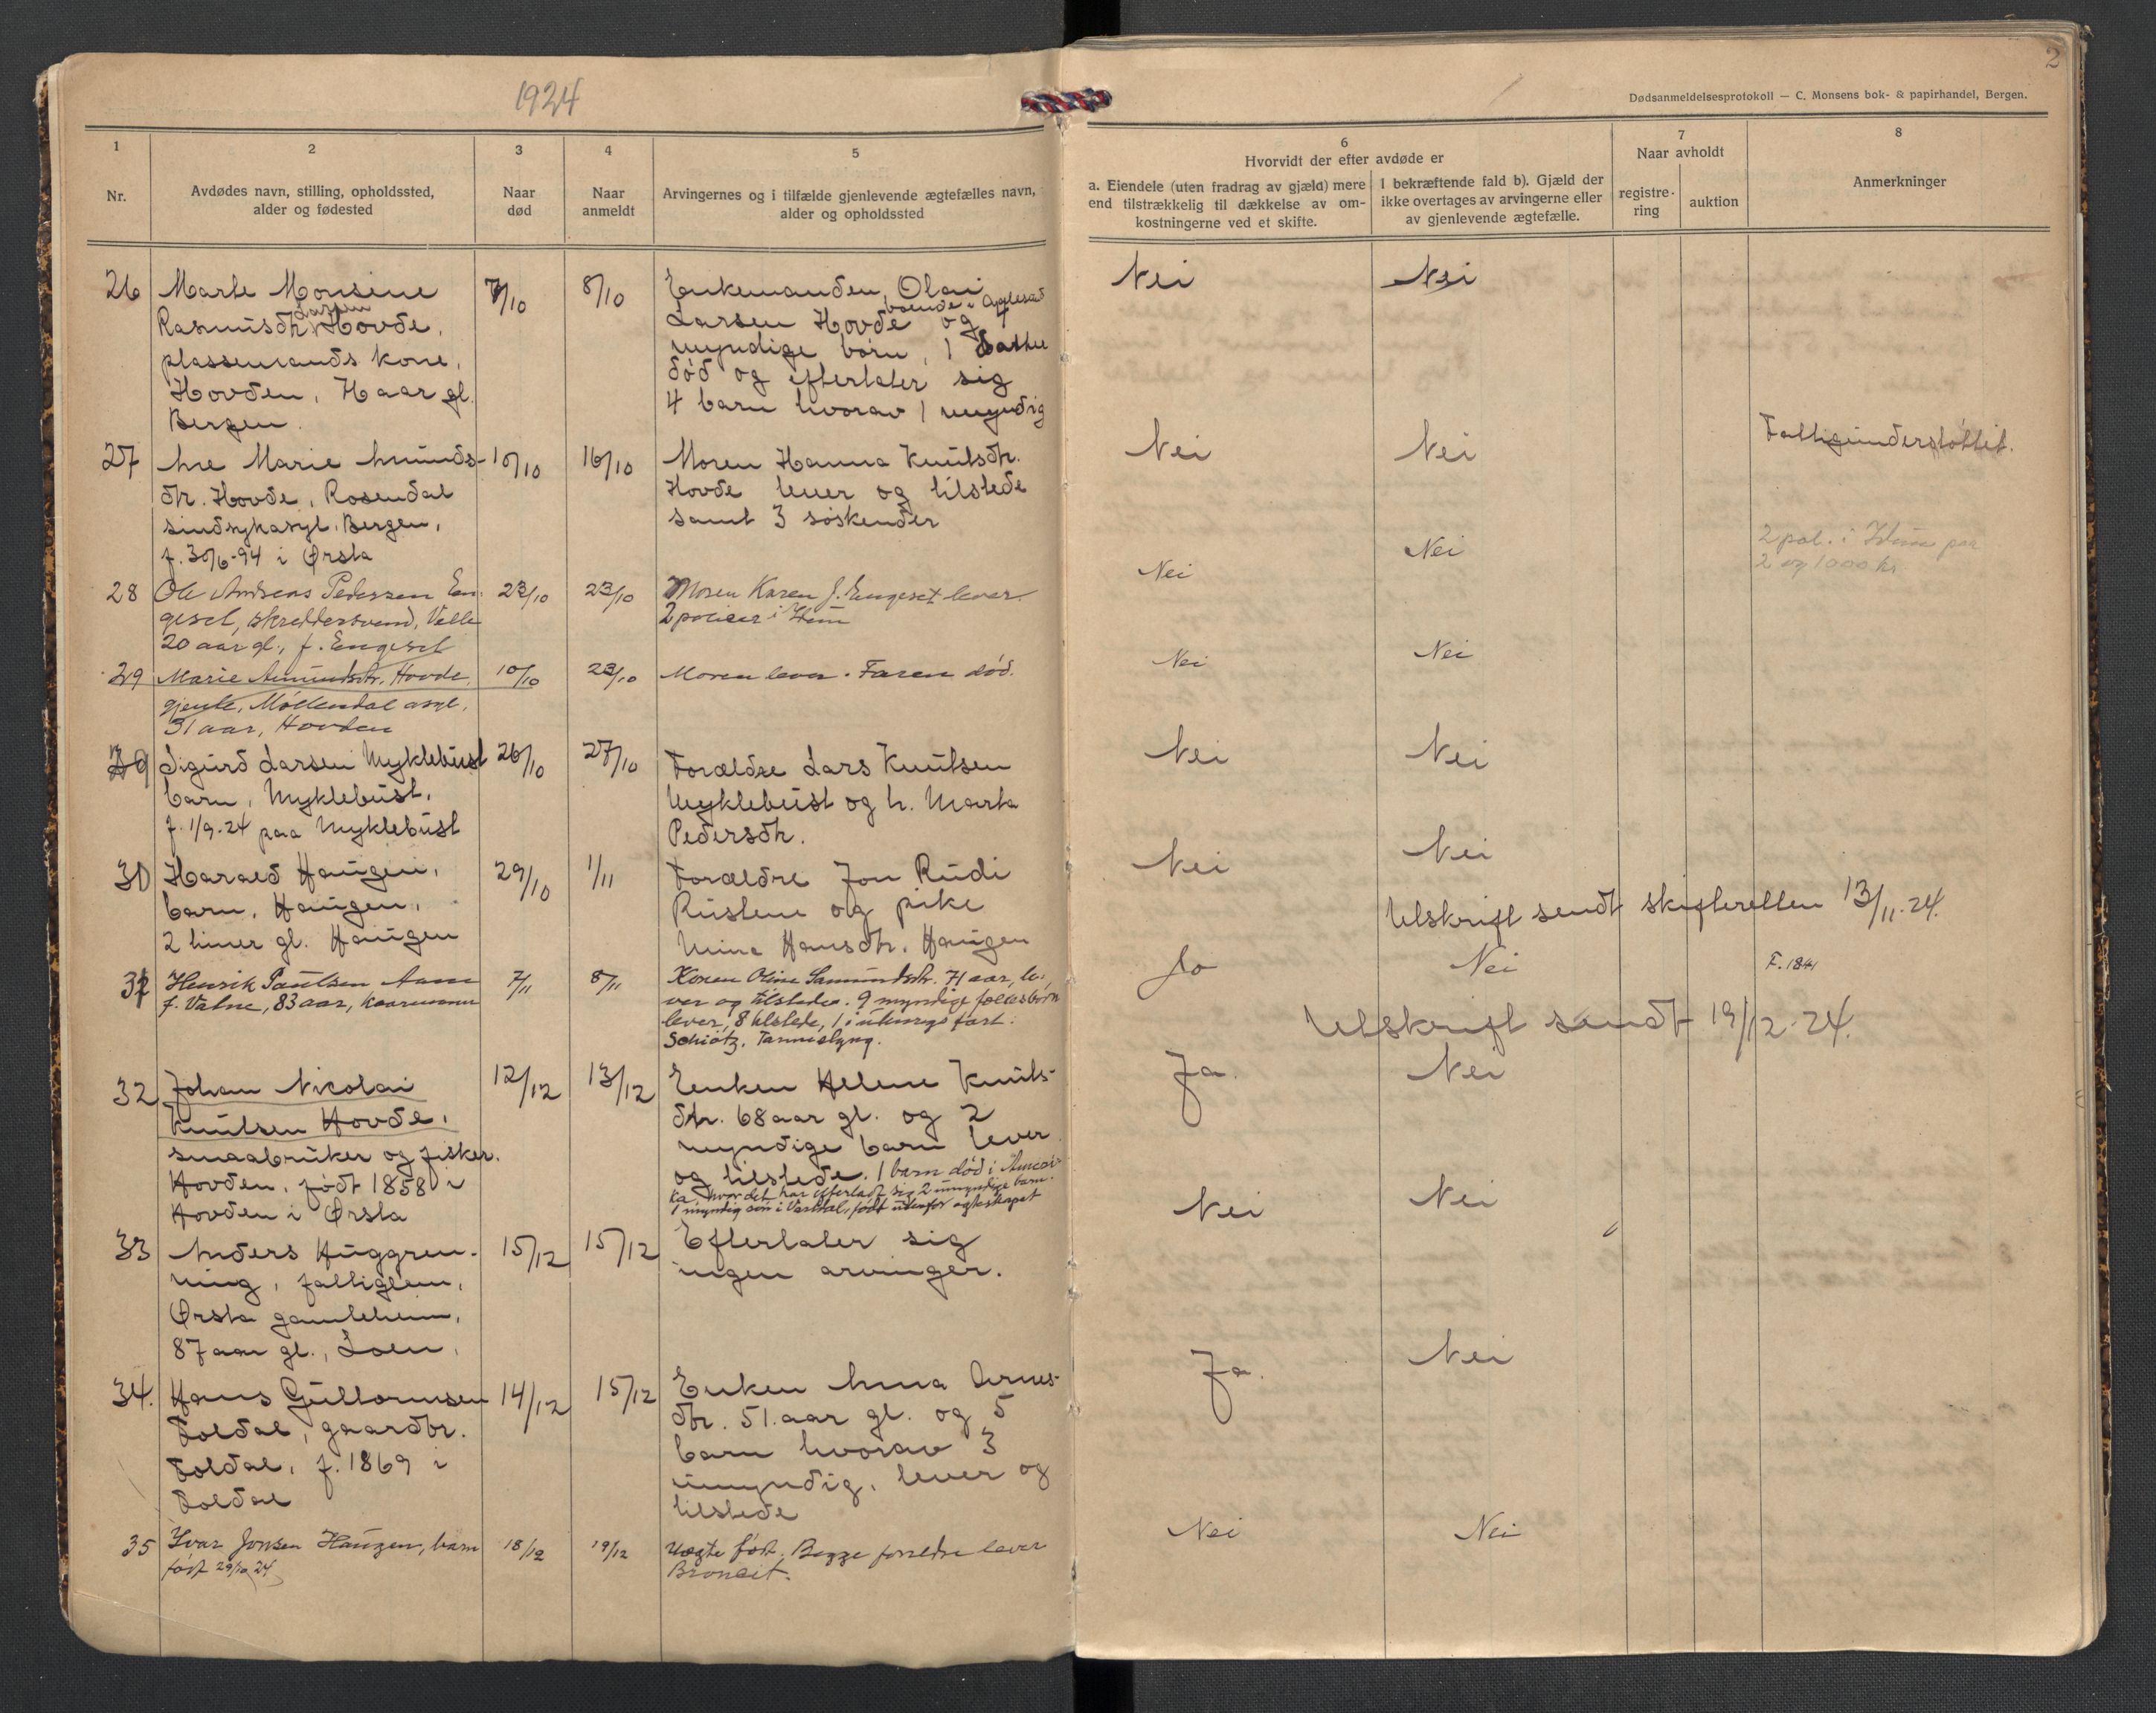 1924
2
Dødsanmeldelsesprotokoll — C. Monsens bok- & papirhandel, Bergen.
1
Nr.
2
Avdødes navn, stilling, opholdssted,
alder og fødested
3
Naar
død
4
Naar
anmeldt
5
Arvingernes og i tilfælde gjenlevende ægtefælles navn,
alder og opholdssted
6
Hvorvidt der efter avdøde er
a. Eiendele (uten fradrag av gjæld) mere
end tilstrækkelig til dækkelse av om-
kostningerne ved et skifte.
I bekræftende fald b). Gjæld der
ikke overtages av arvingerne eller
av gjenlevende ægtefælle.
7
Naar avholdt
registre-
ring
auktion
8
Anmerkninger
26
Marte Monsine
Larsen
Rasmusdtr. Hovde,
plassemands kone,
Hovden, Haar gl.
Bergen.
7/10
8/10
Enkemanden Olai
boende i
Larsen Hovde og 4
myndige børn, 1 datter
død og efterlater sig
4 barn hvorav 1 umyndig
Nei
Nei
27
Ane Marie Amunds-
dtr. Hovde, Rosendal
sindsykasyl. Bergen,
f. 30/6-94 i Ørsta
10/10
16/10
Moren Hanna Knutsdtr.
Hovde lever og tilstede
samt 3 søskender
Nei
Nei
Fattigunderstøttet.
28
Ole Andreas Pedersen En-
geset, skreddersvend, Velle
20 aar gl., f. Engeset
23/10
23/10
Moren Karen J. Engeset lever.
2 poliser i Idun
Nei
Nei
2 pol. i Idun paa
2 og 1000 kr.
29
Marie Amundsdtr. Hovde,
gjente, Møllendal asyl,
31 aar, Hovden
10/10
23/10
Moren lever. Faren død.
Nei
Nei
Sigurd Larsen Myklebust
barn, Myklebust,
f. 1/9-24 paa Myklebust
26/10
27/10
Forældre Lars Knutsen
Myklebust og h. Marta
Pedersdtr.
Nei
Nei
30
Harald Haugen,
barn, Haugen,
2 timer gl. Haugen
29/10
1/11
Forældre Jon Rudi
Rustene og pike
Mina Hansdtr. Haugen
Nei
Nei
Utskrift sendt skifteretten 13/11-24.
31
Henrik Paulsen Aam
f. Vatne, 83 aar, kaarmann
7/11
8/11
Konen Oline Samundsdtr. 71 aar, le-
ver og tilstede. 9 myndige fællesbørn
lever, 8 tilstede, 1 i utenrigs fart.
Schiøtz,
Jo
Nei
F. 1841
Utskrift sendt 19/12-24.
32
Johan Nicolai
Knutsen Hovde,
smaabruker og fisker.
Hovden, født 1858 i
Hovden i Ørsta
12/12
13/12
Enken Helene Knuts-
dtr. 68 aar gl. og 2
myndige barn lever
og tilstede. 1 barn død i Ameri-
ka hvor det har efterladt sig 2 umyndige barn.
1 myndig søn i Vartdal, født utenfor egteskapet
Ja.
Nei
33
Anders Huggren-
ning, fattiglem,
Ørsta gamleheim,
87 aar gl., Loen,
15/12
15/12
Efterlater sig
ingen arvinger.
Nei
Nei
34.
Hans Guttormsen
Foldal, gaardbr.
Foldal, f. 1869 i
Foldal
14/12
15/12
Enken Anna Arnes-
dtr. 51. aar gl. og 5
barn hvorav 3
umyndig, lever og
tilstede
Ja.
Nei
35
Ivar Jonsen Haugen, barn
født 29/10 24
18/12
19/12
Uegte født. Begge foreldre lever
Bronkit.
Nei
Nei